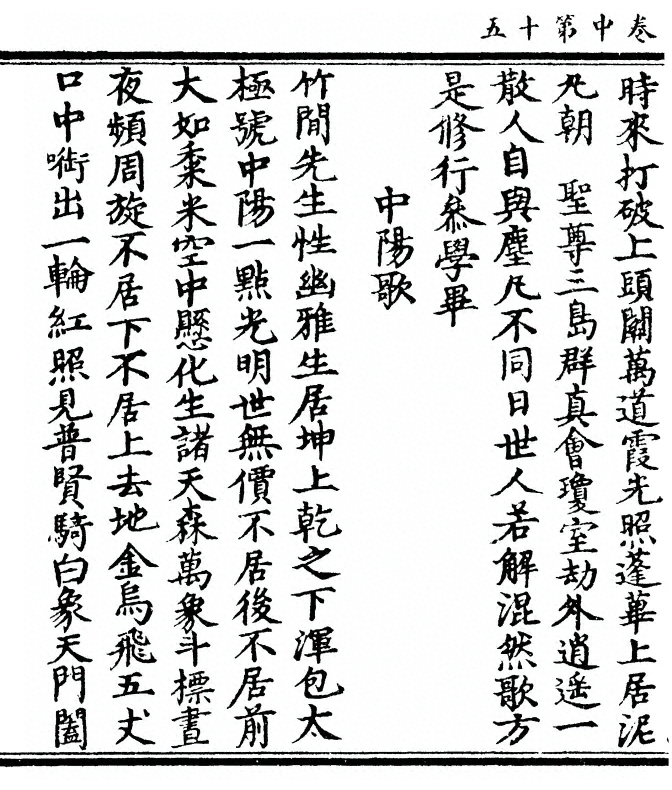 卷中第十五
時來打破上頭關萬道霞光照蓬蓽上居泥
丸朝　聖尊三島群真會瓊室劫外逍遥一
散人自與塵凡不同日世人若解混然歌方
是修行叅學畢
中陽歌
竹閒先生性幽雅生居坤上乾之下渾包太
極號中陽一點光明世無價不居後不居前
大如黍米空中懸化生諸天森萬象斗摽晝
夜頻周旋不居下不居上去地金烏飛五丈
口中㗸出一輪紅照見普賢騎白象天門闔